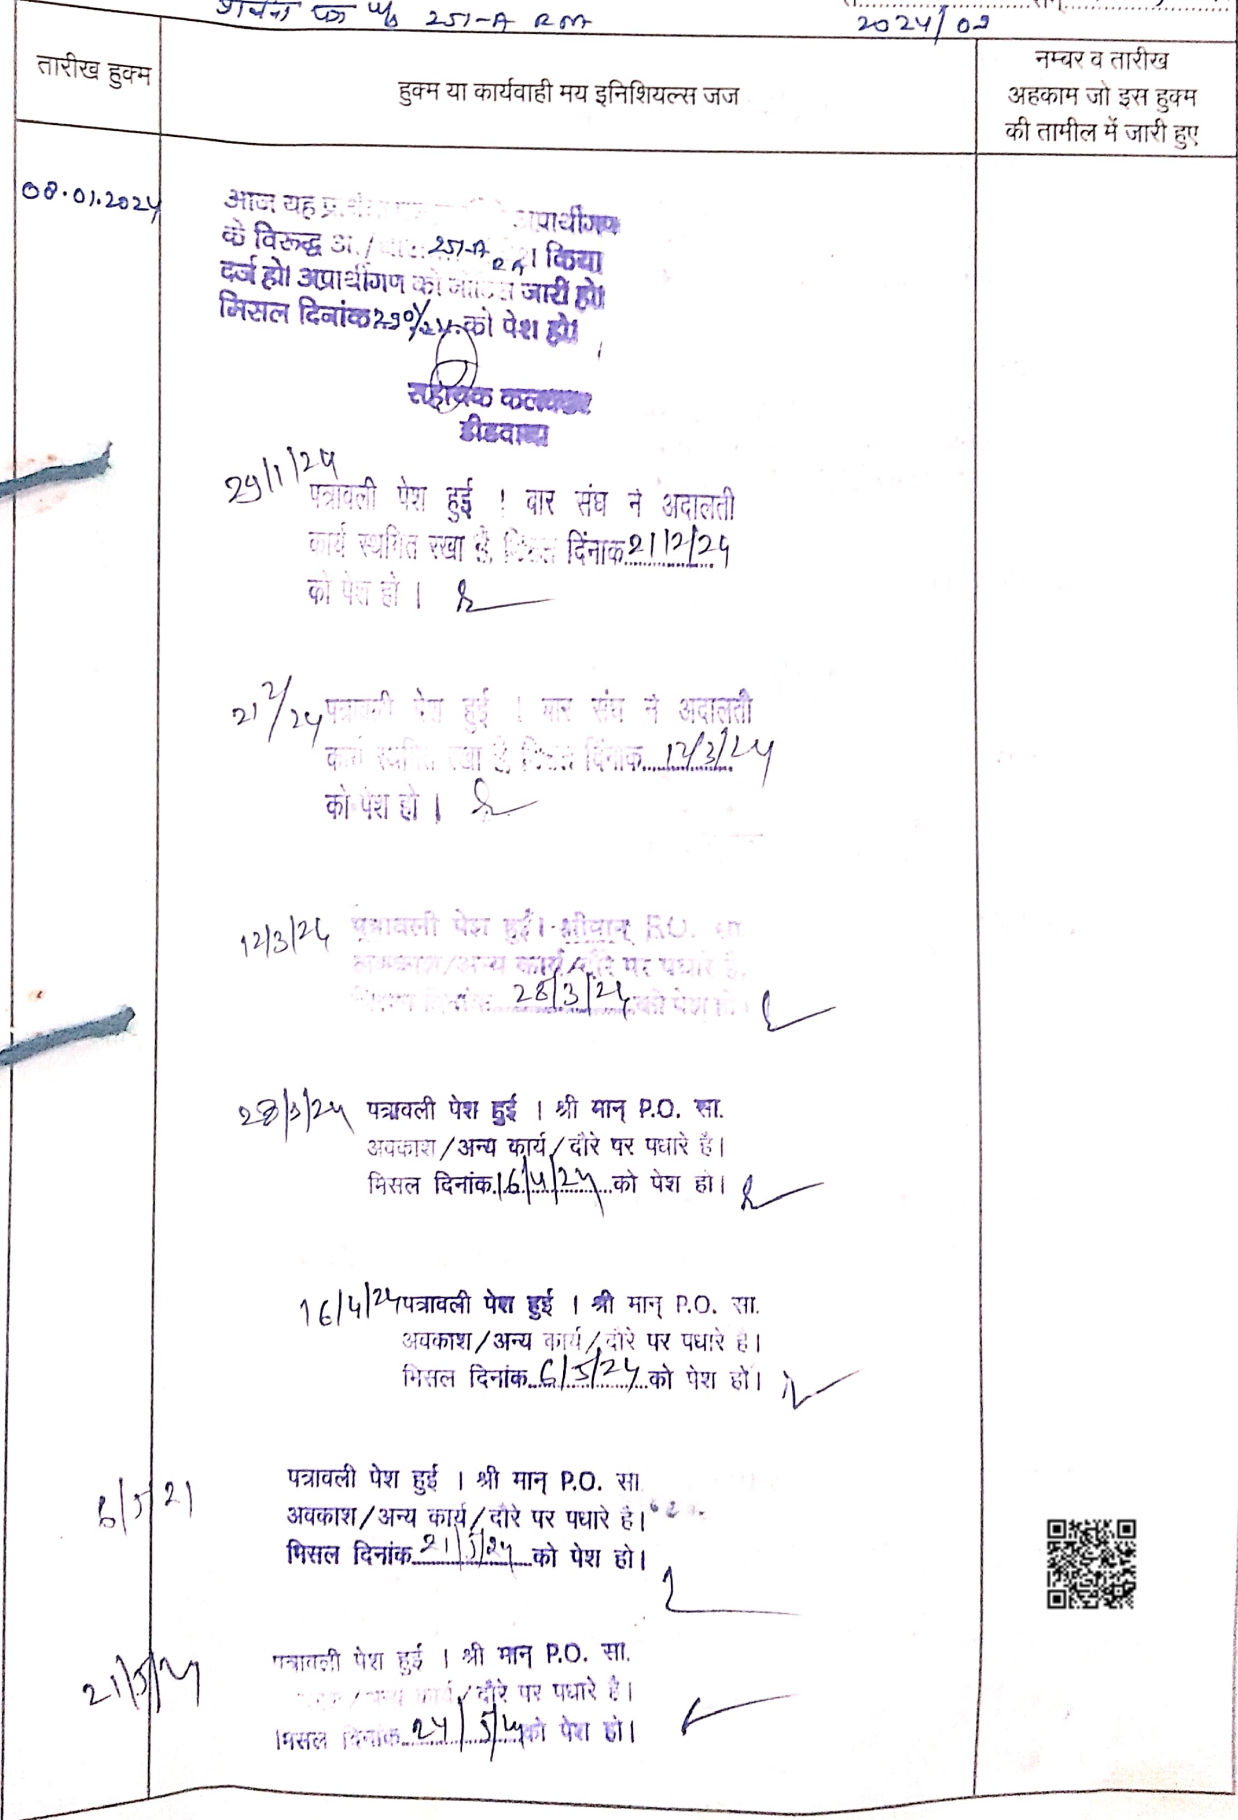 251-A
2024/02
तारीख हुक्म
हुक्म या कार्यवाही मय इनिशियल्स जज
नम्बर व तारीख
अहकाम जो इस हुक्म
की तामील में जारी हुए
08.01.2024
आज यह अप्रार्थीगण
के विरूद्ध 251-A किया
दर्ज हो। अप्रार्थीगण को जारी हो।
मिसल दिनांक को पेश हो।
सहायक कलक्टर
डीडवाना
29/1/24
पत्रावली पेश हुई ! बार संघ नें अदालती
कार्य स्थगित रखा है, मिसल दिंनाक 21/2/24
को पेश हो ।
21/2/24 पत्रावली पेश हुई ! बार संघ नें अदालती
कार्य स्थगित रखा है, मिसल दिंनाक 12/3/24
को पेश हो ।
12/3/24 पत्रावली पेश हुई। श्रीमान्
अवकाश/अन्य कार्य/दौरे पर पधारे है,
दिनांक 28/3/24 को पेश हो।
28/3/24 पत्रावली पेश हुई । श्री मान् P.O. सा.
अवकाश/अन्य कार्य/दौरे पर पधारे है।
मिसल दिनांक 16/4/24 को पेश हो।
16/4/24 पत्रावली पेश हुई । श्री मान् P.O. सा.
अवकाश/अन्य कार्य/दौरे पर पधारे है।
मिसल दिनांक 6/5/24 को पेश हो।
पत्रावली पेश हुई । श्री मान् P.O. सा
6/5/21 अवकाश/अन्य कार्य/दौरे पर पधारे है।
मिसल दिनांक 21/5/24 को पेश हो।
पत्रावली पेश हुई । श्री मान् P.O. सा.
21/5/24 कार्य/दौरे पर पधारे है।
मिसल दिनांक 24/5/24 को पेश हो।